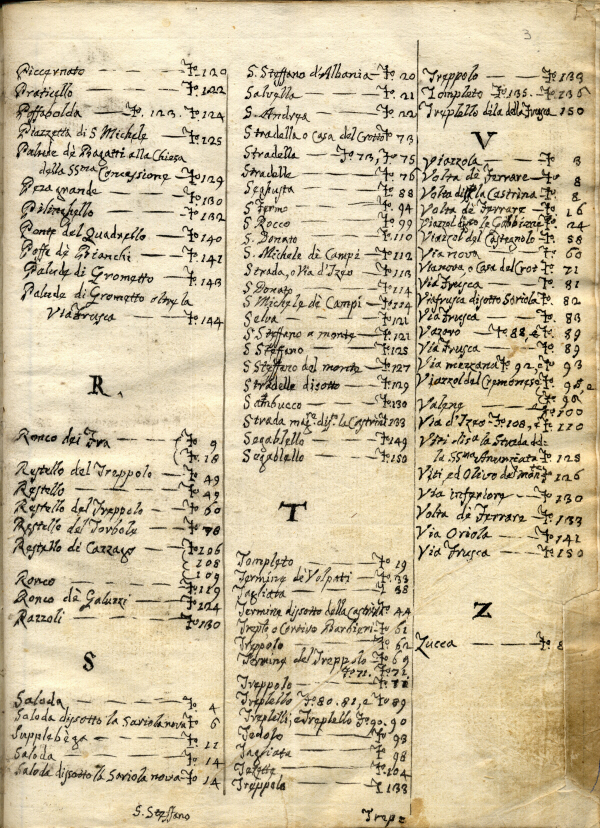 3
Piccernato — fo. 120
Praticello — fo. 122
Poffabolda — fo. 123. fo. 124
Piazzetta di S Michele — fo. 125
Palude dè Pagatti alla Chiesa
della SSma Concessione — fo. 129
Peza grande — fo. 130
Pèlenghello — fo. 132
Ponte del Quadrello — fo. 140
Poffe dè Bianchi — fo. 141
Palude di Grometto — fo. 143
Palude di Grometto oltre la
Via Frusca — fo. 144
R.
Ronco dei Fra — fo. 9
fo. 18
Restello del Treppolo — fo. 49
Restello — fo. 49
Restello del Treppolo — fo. 60
Restello del Torbole — fo. 78
Restello di Cazzago — fo. 106
108
109
Ronco — fo. 119
Ronco dè Galuzzi — fo. 124
Razzoli — fo. 130
S
Saloda — fo. 4
Saloda disotto la Sariola nova fo. 6
Supplebèza — fo. 11
Saloda — fo. 14
Saloda disotto la Sariola nova fo. 14
S. Steffano
S. Steffano d'Albania — fo. 20
Salvella — fo. 21
S. Andrea — fo. 22
Stradella o Casa del Croto fo. 73
Stradella — fo. 73, fo. 75
Stradelle — fo. 76
fo. 88
S Fermo — fo. 94
S Rocco — fo. 99
S. Donato — fo. 110
S. Michele dè Campi — fo. 112
Strada, o Via d'Izeo — fo. 113
S Donato — fo. 114
S Michele dè Campi — fo. 114
Selva — fo. 121
S. Steffano a monte — fo. 121
S Steffano — fo. 125
S Steffano del monte — fo. 127
Stradelle disotto — fo. 129
Sambucco — fo. 130
Strada la Castrina 133
Segablello — fo. 149
Segablello — fo. 150
T
Tompleto — fo. 19
Termine dè Volpati — fo. 33
Tagliata — 38
Termine disotto della Castrina fo. 44
Treplo o Cortivo Barbieri fo. 61
Treppolo — fo. 62
Termine del Treppolo — fo. 69
fo. 71. fo. 72
Treppolo — fo. 77
Treplello fo. 80. 81, e fo. 89
Treplelli, e Treplello fo. 90. 90
Tedolo — fo. 93
Tagliata — fo. 98
fo. 104
Treppolo — fo. 133
Trepe
Treppolo — fo. 133
Tompleto fo. 135. — fo. 136
Treplello della Frusca 150
V
Viazzola — fo. 3
Volta dè Ferrare — fo. 8
Volta la Castrina fo. 8
Volta dè Ferrare — fo. 16
fo. 24
Viazzol del Castagnolo fo. 58
Via nova — fo. 60
Via nova, o Casa del Crot fo. 71
Via Frusca — fo. 81
Via frusca disotto Sariola fo. 82
Via Frusca — fo. 83
Vazoro — fo. 88, e fo. 89
Via Frusca — fo. 89
Via mezzana fo. 92, e 93
Viazzol del Cremonese
98
100
Via d'Izeo fo. 108, e 110
la Strada della
SSma Anunciata — fo. 125
Viti, ed Olivo del monte fo. 126
Via inferiore — fo. 130
Volta dè Ferrare — fo. 133
Via Oriola — fo. 141
Via Frusca — fo. 150
Z
Zucca — fo. 8